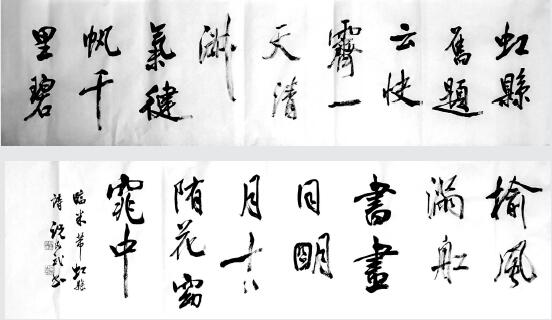 虹縣
舊題
云快
霽一
天清
淑
氣健
帆千
里碧
榆風
滿舡
書畫
同明
月十日
随花窈
窕中
臨米芾虹縣
詩